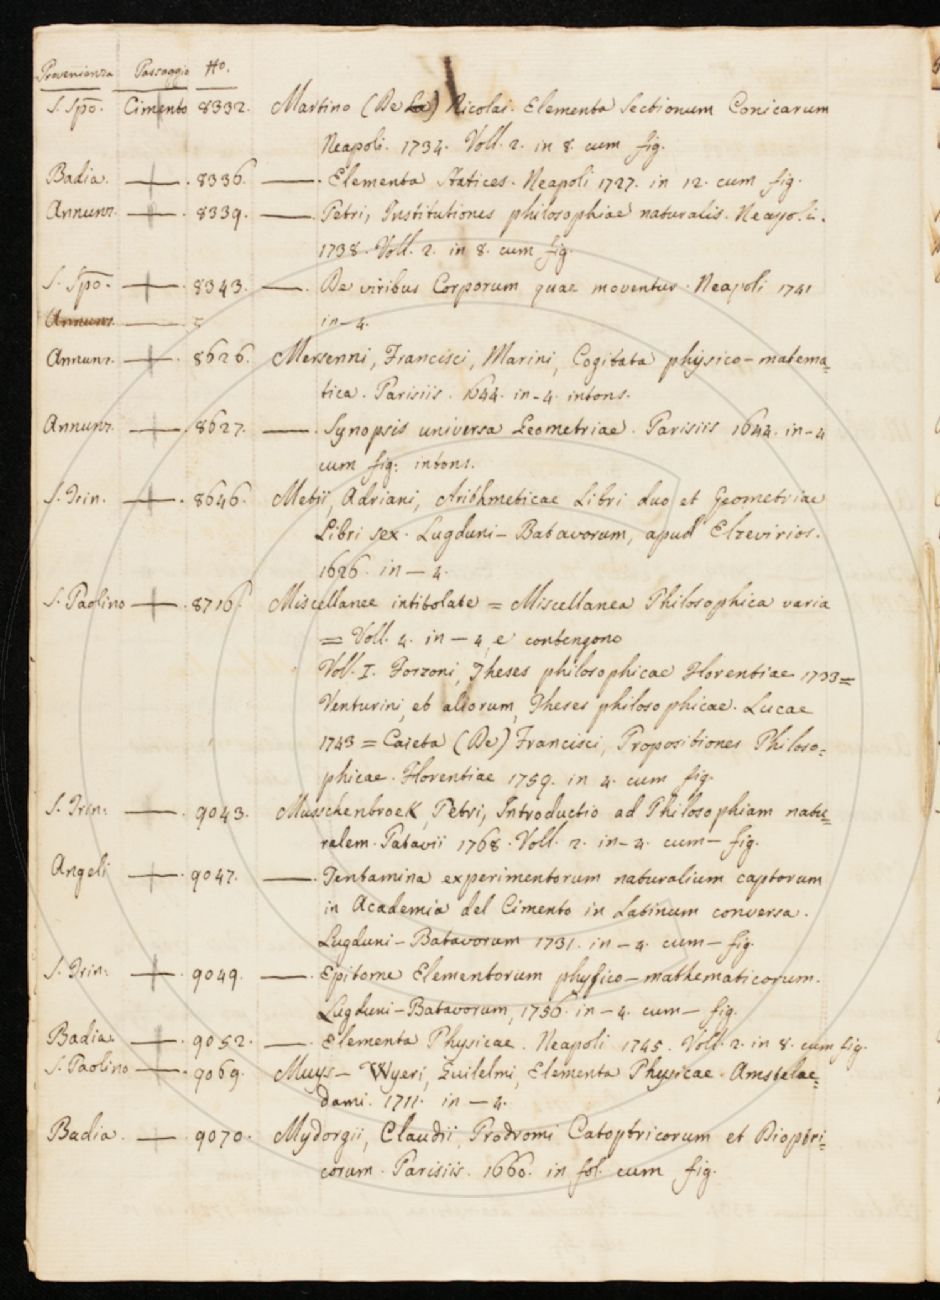 Provenienza Passaggio No.
S. Spo. Cimento 8332. Martino (De La) Nicolas. Elementa Sectionum Conicarum
Neapoli. 1734. Voll. 2. in 8. cum fig.
Badia. — . 8336. — . Elementa Statices. Neapoli 1727. in 12. cum fig.
Annunz. — . 8339. — . Petri, Institutiones philosophiae naturalis. Neapoli.
1738. Voll. 2. in 8. cum fig.
S. Spo. — . 8343. — . De viribus Corporum quae moventur. Neapoli 1741
Annunz. — in—4.
Annunz. — . 8626. Mersenni, Francisci, Marini, Cogitata physico-matema=
tica. Parisiis. 1644. in-4. intons.
Annunz. — . 8627. — . Synopsis universa Geometriae. Parisiis 1644. in-4
cum fig: intons.
S. Trin. — . 8646. Metii, Adriani, Arithmeticae Libri duo et Geometriae
Libri sex. Lugduni-Batavorum, apud Elzevirios.
1626. in—4.
S. Paolino — . 8716. Miscellanee intitolate = Miscellanea Philosophica varia
= Voll. 4. in—4, e contengono
Voll. I. Porzoni, Theses philosophicae Florentiae 1733=
Venturini, et aliorum, Theses philosophicae. Lucae
1743 = Caieta (De) Francisci, Propositiones Philoso=
phicae. Florentiae 1759. in 4. cum fig.
S. Trin: — . 9043. Musschenbroek, Petri, Introductio ad Philosophiam natu=
ralem. Patavii 1768. Voll. 2. in-4. cum— fig.
Angeli — . 9047. — . Tentamina experimentorum naturalium captorum
in Academia del Cimento in Latinum conversa.
Lugduni-Batavorum 1731. in—4. cum— fig.
S. Trin: — . 9049. — . Epitome Elementorum physico-mathematicorum.
Lugduni-Batavorum, 1756. in—4. cum— fig.
Badia. — . 9052. — . Elementa Physicae. Neapoli 1745. Voll. 2. in 8. cum fig.
S. Paolino — . 9069. Muys— Wyeri, Guilelmi, Elementa Physicae. Amstelae=
dami. 1711. in—4.
Badia. — . 9070. Mydorgii, Claudii, Prodromi Catoptricorum et Dioptri=
corum. Parisiis. 1660. in fol. cum fig.